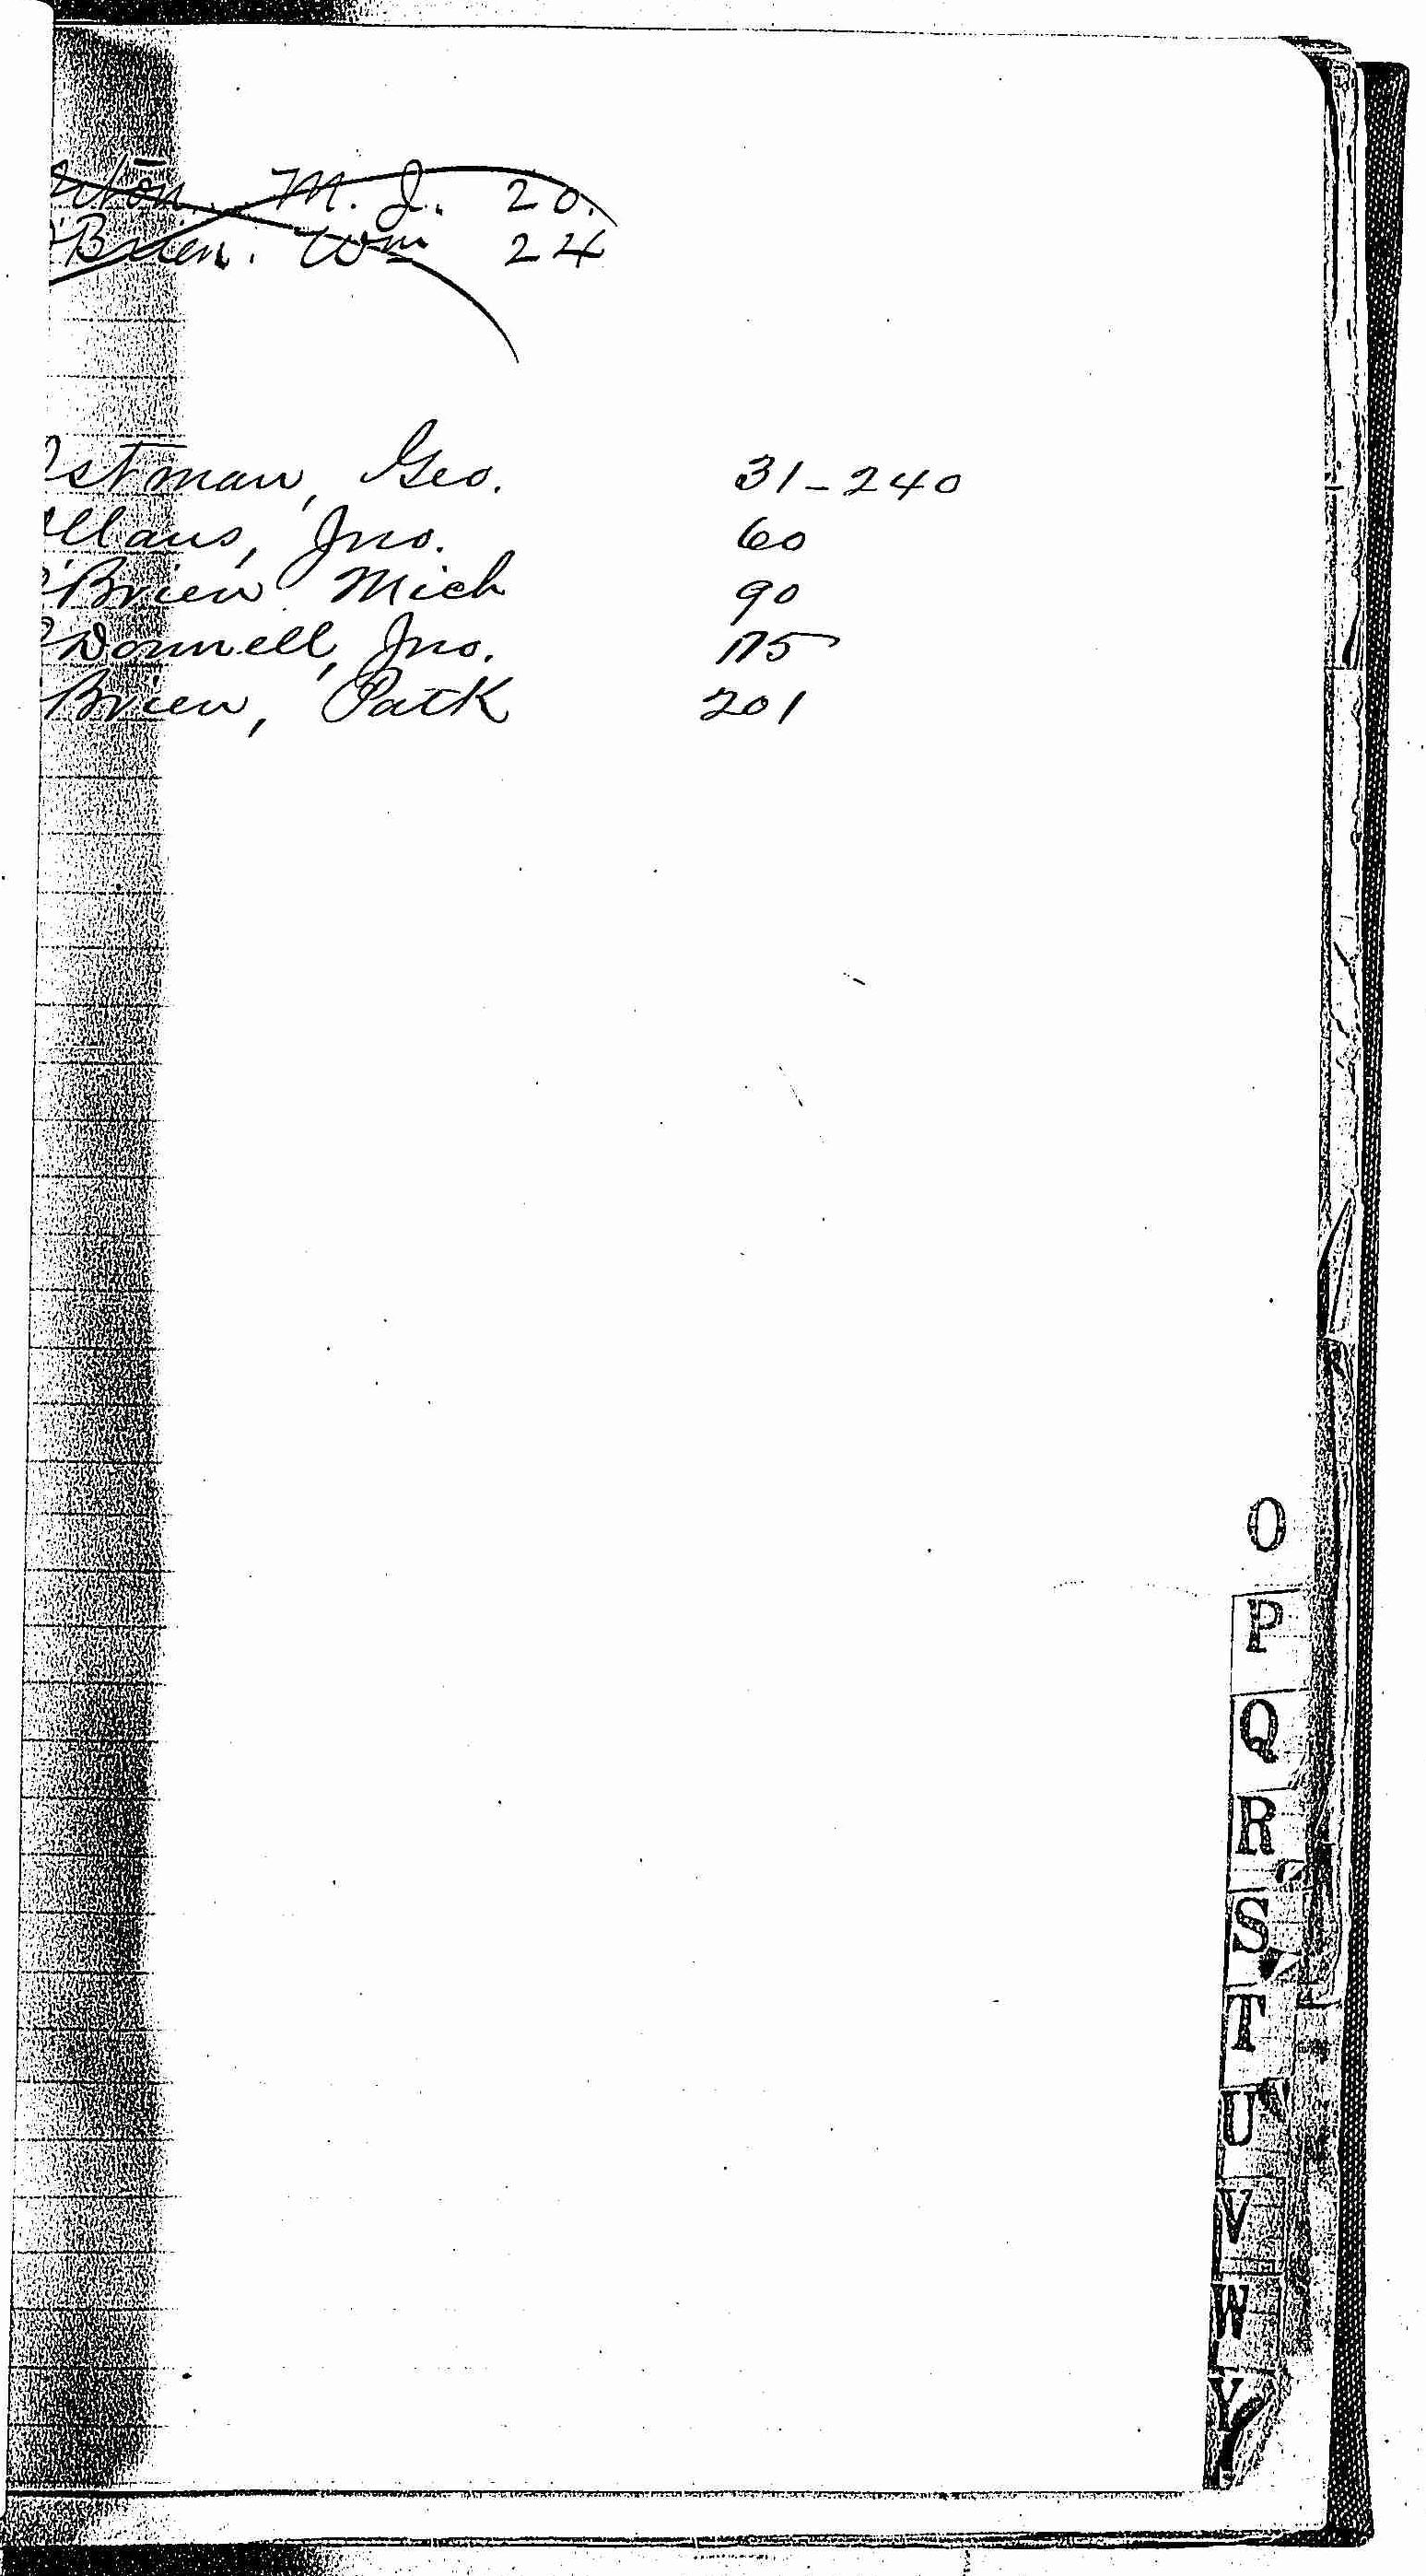 M. J. 20.
O'Brien. Wm 24
Ostman, Geo. 31-240
Jno. 60
O'Brien Mich 90
O'Donnell, Jno. 175
O'Brien, Patk 201
O
P
Q
R
S
T
U
V
W
Y